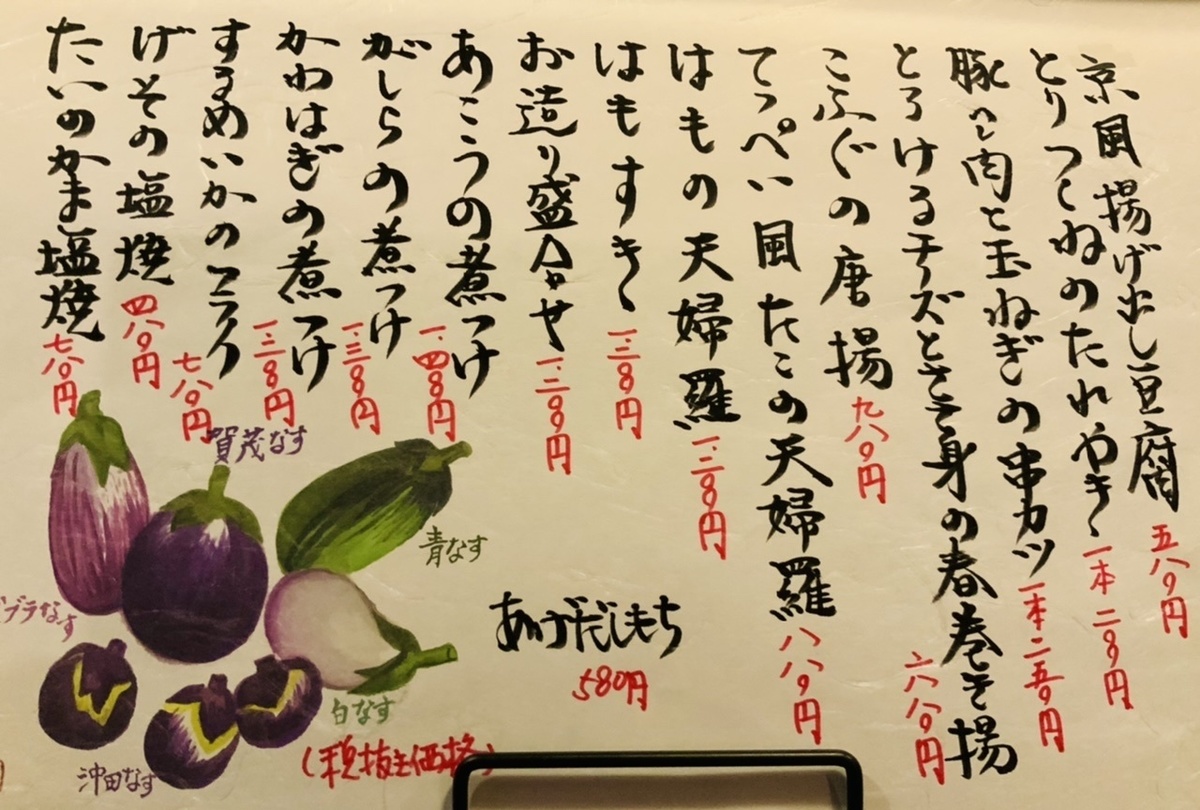 京風揚げ出し豆腐 五八〇円
とりつくねのたれやき 一本二九〇円
豚ヘレ肉と玉ねぎの串カツ 一本二五〇円
とろけるチーズとささ身の春巻き揚 六八〇円
こふぐの唐揚 九八〇円
てっぺい風たこの天婦羅 八八〇円
はもの天婦羅 一、二八〇円
はもすき 一、二八〇円
お造り盛合せ 一、二八〇円
あこうの煮つけ 一、四八〇円
がしらの煮つけ 一、三八〇円
かわはぎの煮つけ 一、三八〇円
するめいかの 七八〇円
げその塩焼 四八〇円
たいのかま塩焼 七八〇円
あげだしもち
580円
賀茂なす
青なす
ブラなす
白なす
沖田なす
(税抜き価格)